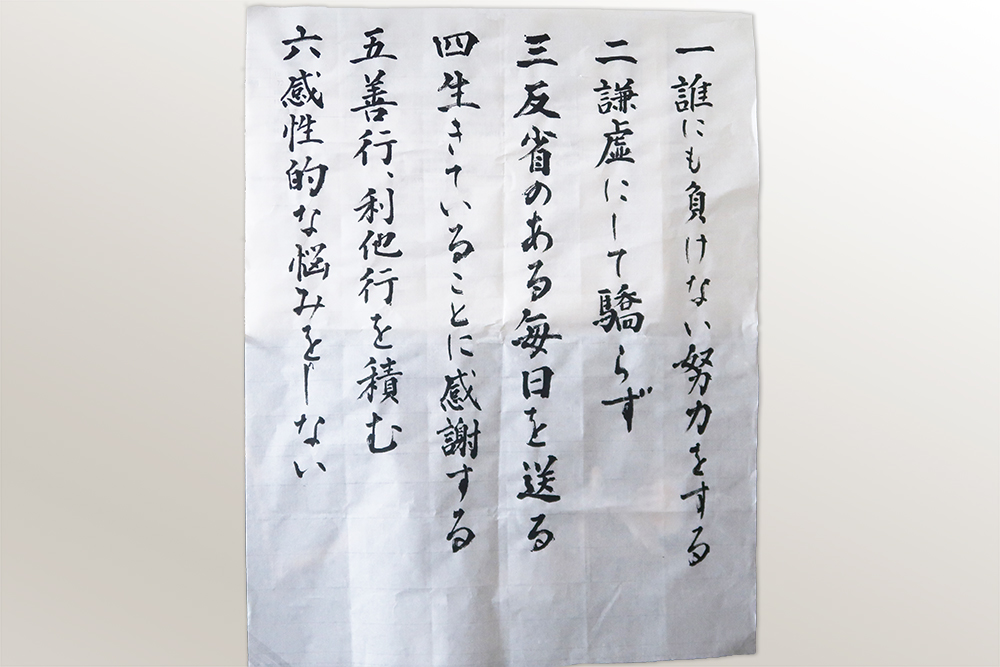 一誰にも負けない努力をする
二謙虚にして驕らず
三反省のある毎日を送る
四生きていることに感謝する
五善行、利他行を積む
六感性的な悩みをしない